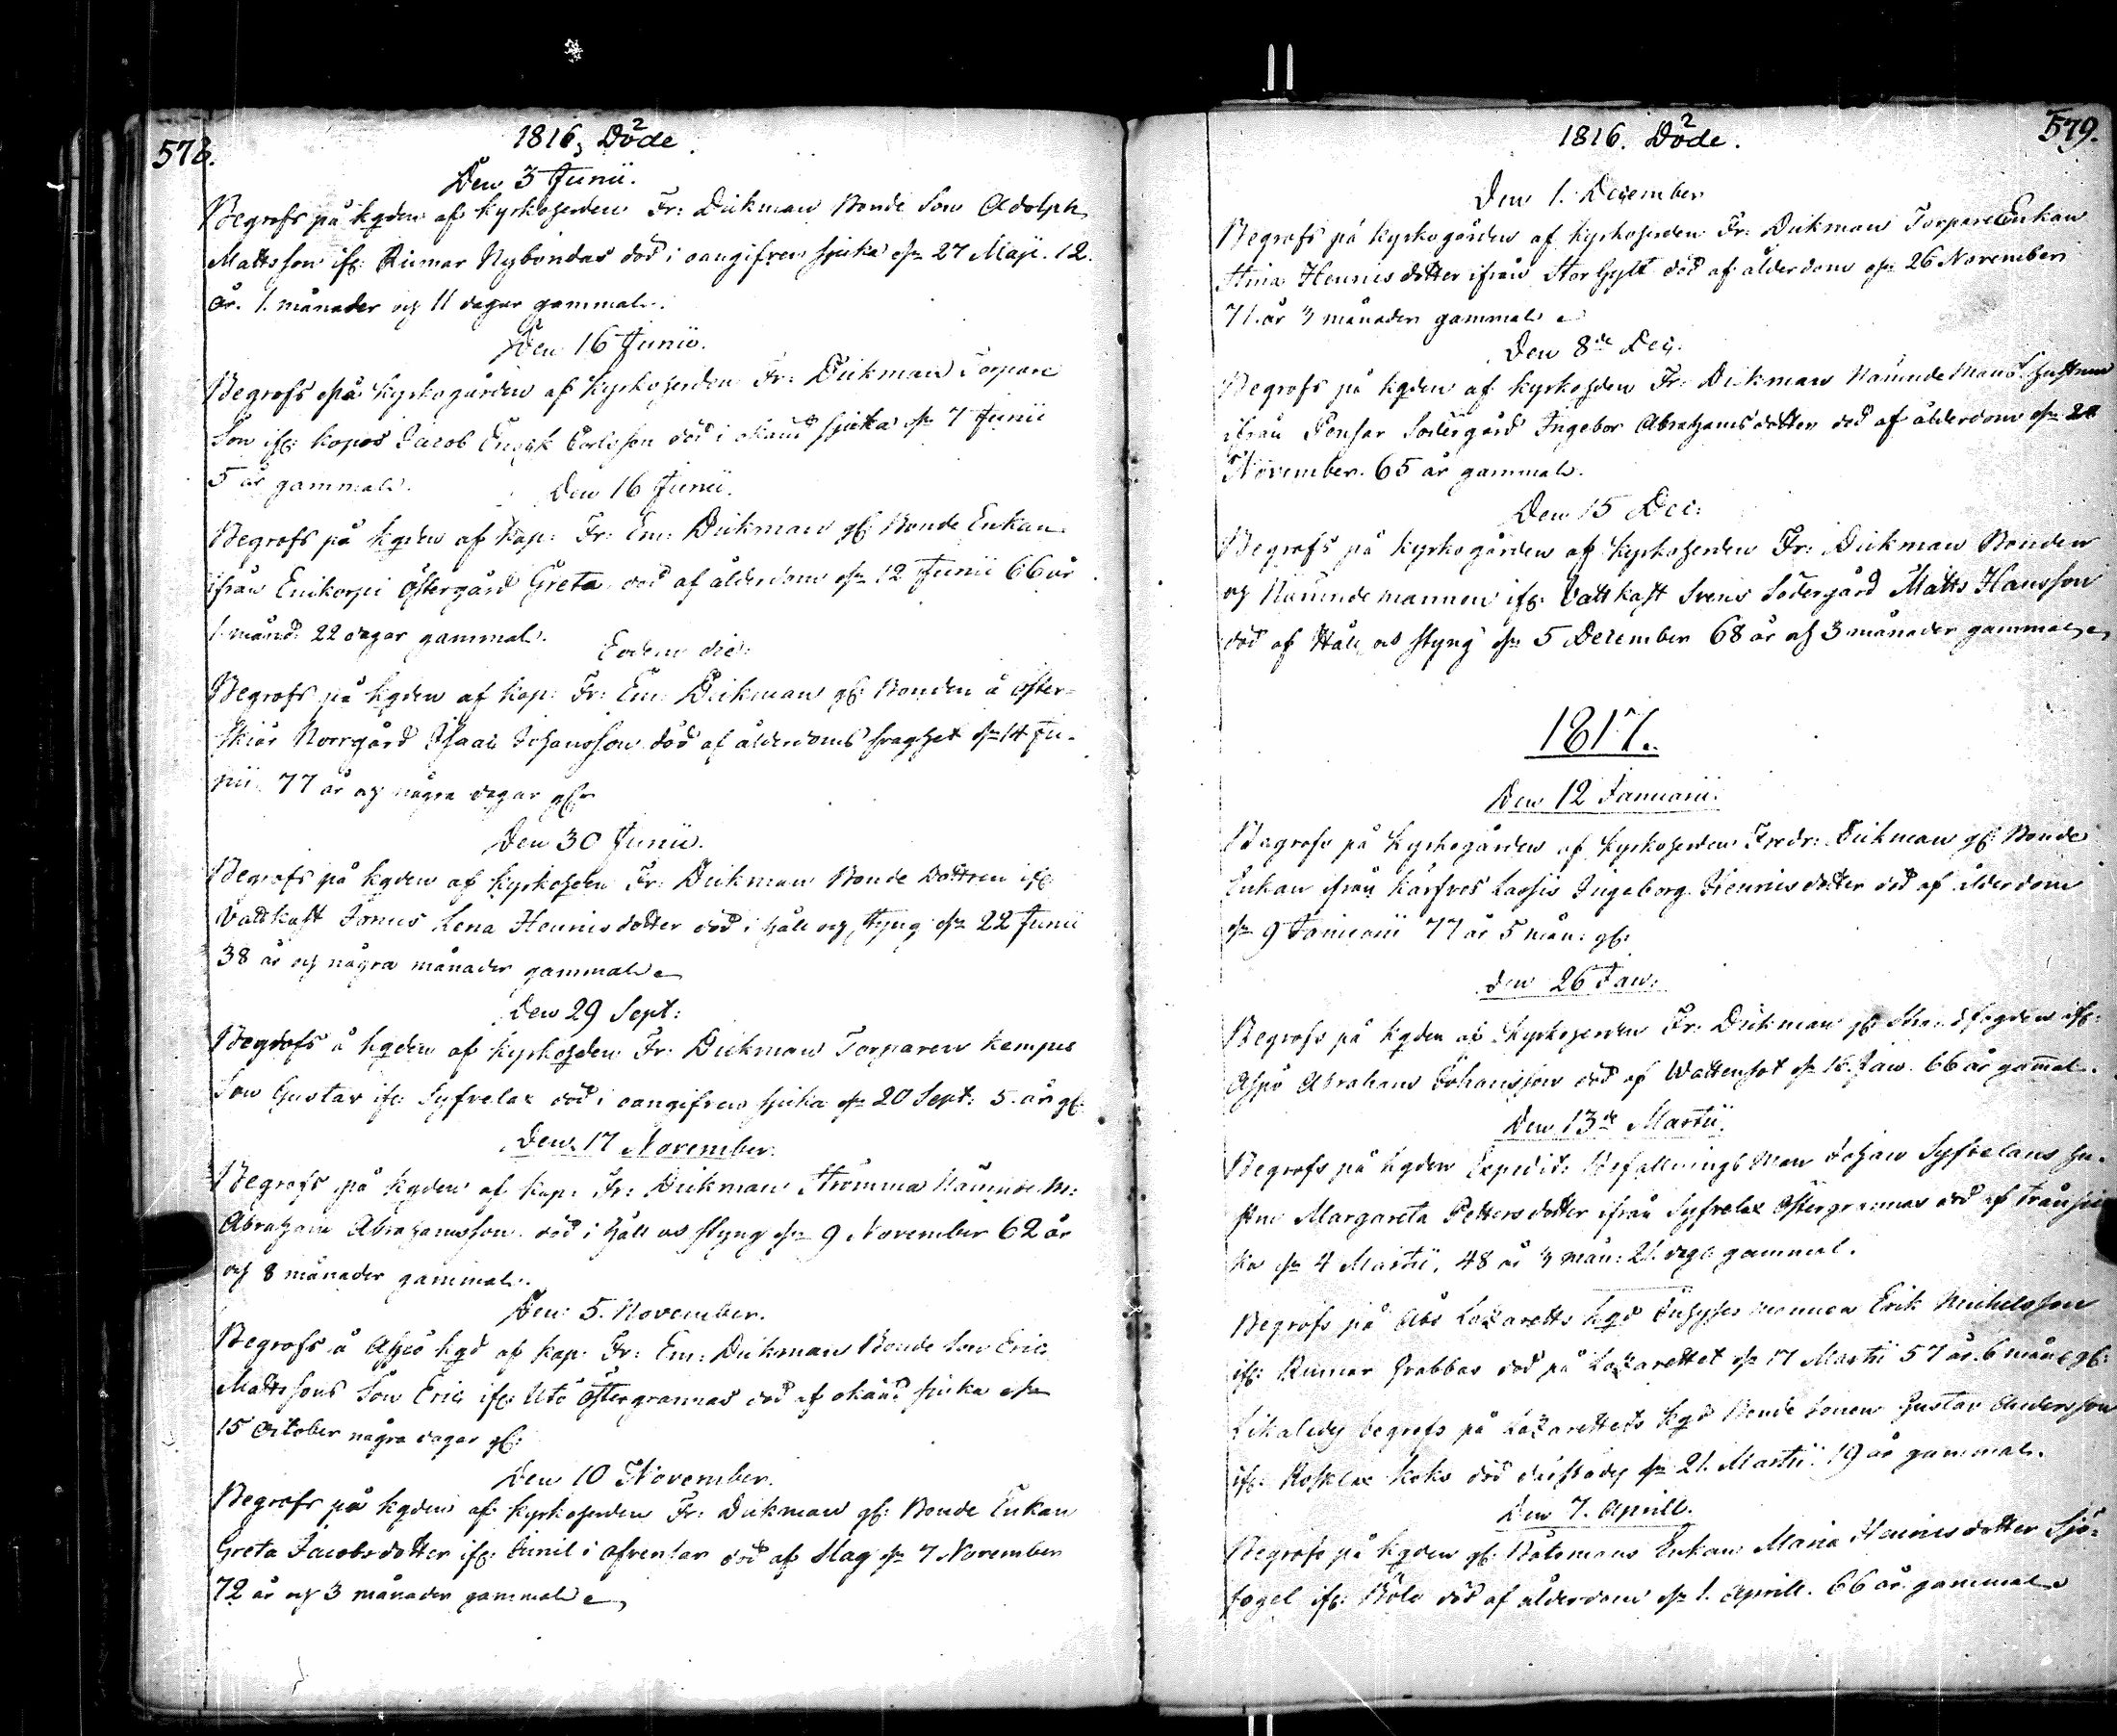 578.
1816, Döde
Den 3 Junii.
Begrofs på kgden af kyrkoherden Fr: Dickman Bonde Son Adolph
Mattsson ifr: Rimar Nybondas död i oangifven siuka dn 27 Maji. 12.
år. 1. månader och 11 dagar gammal.
Den 16 Junii.
Begrofs på kyrkogården af kyrkoherden Fr: Dickman Torpare
Son ifr: kopos Jacob Carlsson död i okänd siuka dn 7 Junii
5 år gammal.
Den 16 Junii.
Begrofs på kgden af Kap: Fr: Em: Dickman gl: Bonde Enkan
ifrån Enikorpi östergård Greta död af ålderdom dn 12 Junii 66 år
1 månd: 22 dagar gammal.
Eodem die:
Begrofs på kgden af kap: Fr: Em: Dickman gl: Bonden å öster-
skiär Norrgård Isaac Johansson död af ålderdoms svaghet dn 14 Ju-
nii. 77 år och några dagar gl:
Den 30 Junii.
Begrofs på kgden af kyrkohden Fr: Dickman Bonde Dottren ifr:
Vattkast Jönus Lena Henricsdotter död i håll och styng dn 22 Junii
38 år och några månader gammal
Den 29 Sept:
Begrofs å kgden af kyrkohden Fr: Dickman Torparen Kempes
Son Gustav ifr: Syfvelax död i oangifven siuka dn 20 Sept: 5. år gl:
Den 17 November.
Begrofs på kgden af kap: Fr: Dickman Strömma Nämnde M:
Abraham Abrahamsson död i håll os styng dn 9 November 62 år
och 8 månader gammal.
Den 5. November.
Begrofs å Aspö kgd af kap: Fr: Em: Dickman Bonde Son Eric
Mattssons Son Eric ifr: Utö östergrannas död af okänd siuka dn
15 October några dagar gl:
Den 10 November.
Begrofs på kgden af kyrkoherden Fr: Dickman gl: Bonde Enkan
Greta Jacobsdotter ifr: i ofvensor död af Slag dn 7 November
72 år och 3 månader gammal
579.
1816. Döde.
Den 1. December
Begrofs på kyrkogården af kyrkoherden Fr: Dickman Torpare Enkan
Stina Henricsdotter ifrån Stor Gylt död af ålderdom dn 26 November
71. år 3 månader gammal
Den 8de Dec:
Begrofs på kgden af kyrkohden Fr: Dickman Nämnde Mans hustrun
ifrån Pensar Södergård Ingebor Abrahamsdotter död af ålderdom dn
November. 65 år gammal.
Den 15 Dec:
Begrofs på kyrkogården af kyrkoherden Fr: Dickman Bonden
och Nämndemannen ifr: Vattkast Svens Södergård Matts Hansson
död af Håll os styng dn 5 December 68 år och 3 månader gammal
1817.
Den 12 Januarii.
Begrofs på kyrkogården af kyrkoherden Fredr: Dickman gl: Bonde
Enkan ifrån Kärfves Lassis Ingeborg Henricsdotter död af ålderdom
dn 9 Januarii 77 år 5 mån: gl:
den 26 Jan:
Begrofs på kgden af kyrkoherden Fr: Dickman gl: ifr:
Aspö Abraham Johansson död af Wattensot dn 16. Jan. 66 år gammal.
Den 13de Martii.
Begrofs på kgden Expedit: Befallnings Man Johan Syfvelans hu-
strun Margareta Pettersdotter ifrån Syfvelax Östergrannas död af Trånsiu
ka dn 4 Martii, 48 år 3 mån: 21. dagar gammal.
Begrofs på Åbo Lazaretts kgd Inhyses mannen Erik Michelsson
ifr: Rimar Grabbas död på Lazarettet dn 17 Martii 57 år. 6 mån: gl:
Likaledes begrofs på Lazarettets kgd Bonde Sonen Gustav Andersson
ifr: Rosklax Koko död därstädes dn 21. Martii. 19 år gammal.
Den 7. Aprill.
Begrofs på kgden gl: Båtsmans Enkan Maria Henricsdotter Sjö-
fogel ifr: Böle död af ålderdom dn 1. Aprill. 66 år gammal